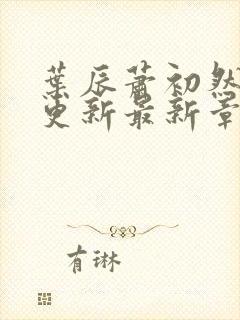 葉辰蕭初然
更新最新章
有琳